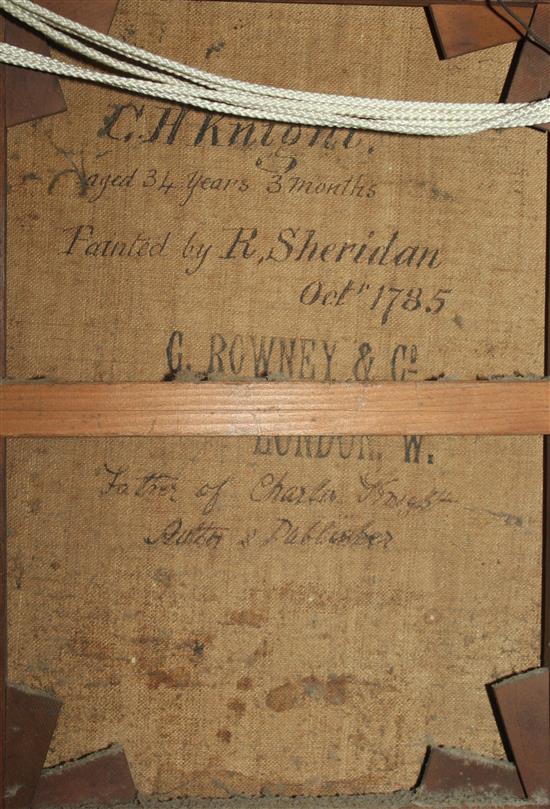 C. H Knight.
aged 34 Years 3 months
Painted by R, Sheridan
Octr 1785
G. ROWNEY & Co
LONDON, W.
Father of Charles Knight
Author & Publisher